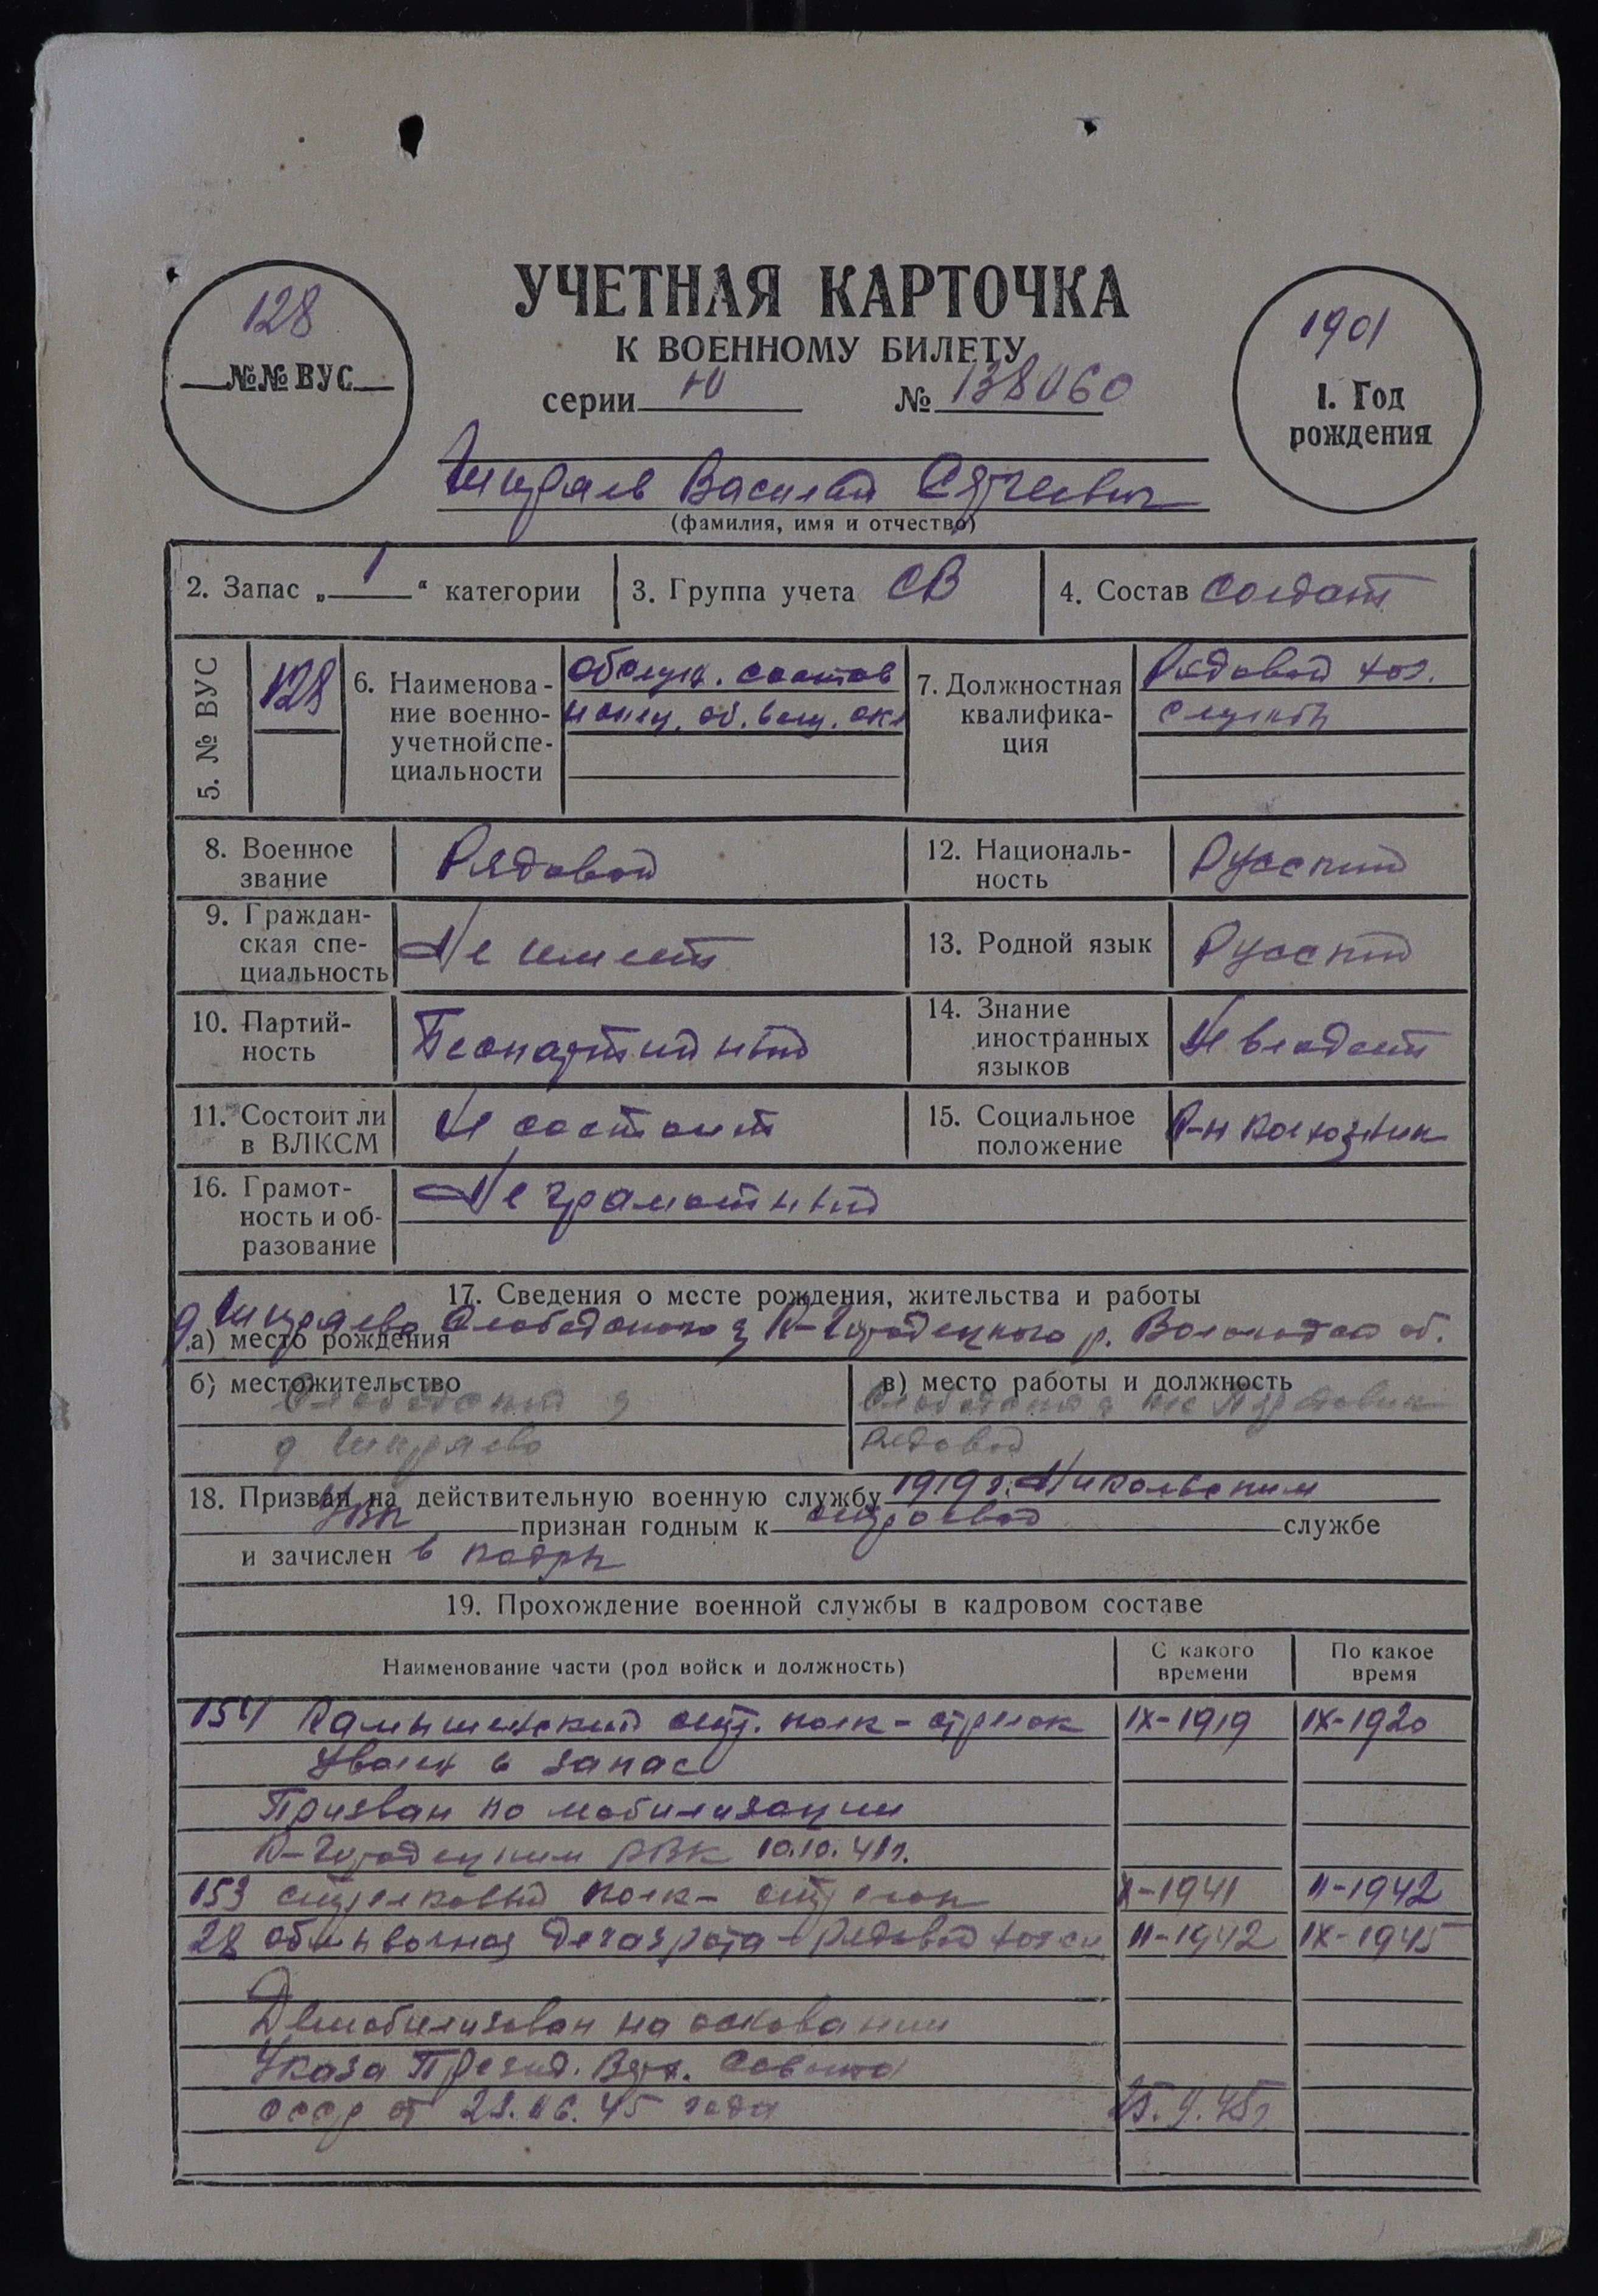 УЧЕТНАЯ КАРТОЧКА
К ВОЕННОМУ БИЛЕТУ
128
№№ ВУС
серии Ю № 138060
1901
1. Год
рождения
Ширяев Василий Сергеевич
(фамилия, имя и отчество)
2. Запас „ 1 “ категории
3. Группа учета СВ
4. Состав Солдат
5. № ВУС 128
6. Наименова-
ние военно-
учетной спе-
циальности
Обслуж. состав
7. Должностная
квалифика-
ция
Рядовой хоз.
службы
8. Военное
звание
Рядовой
12. Националь-
ность
Русский
9. Граждан-
ская спе-
циальность
Не имеет
13. Родной язык Русский
10. Партий-
ность
Беспартийный
14. Знание
иностранных
языков
Не владеет
11. Состоит ли
в ВЛКСМ
Не состоит
15. Социальное
положение
К-н колхозник
16. Грамот-
ность и об-
разование
Не грамотный
17. Сведения о месте рождения, жительства и работы
а) место рождения
д Ширяево Слободского К-Городецкого р. Вологодской об.
б) местожительство
Слободской
д Ширяево
в) место работы и должность
рядовой
18. Призван на действительную военную службу 1919 г. Никольским
УВК признан годным к строевой службе
и зачислен в кадры
19. Прохождение военной службы в кадровом составе
Наименование части (род войск и должность)
С какого
времени
По какое
время
154 Камышинский стр. полк - стрелок IX-1919 IX-1920
Уволен в запас
Призван по мобилизации
К-Городецким РВК 10.10.41г.
153 стрелковый полк - стрелок X-1941 II-1942
28 рота - рядовой II-1942 IX-1945
Демобилизован на основании
Указа Презид. Верх. Совета
СССР от 23.06.45 года